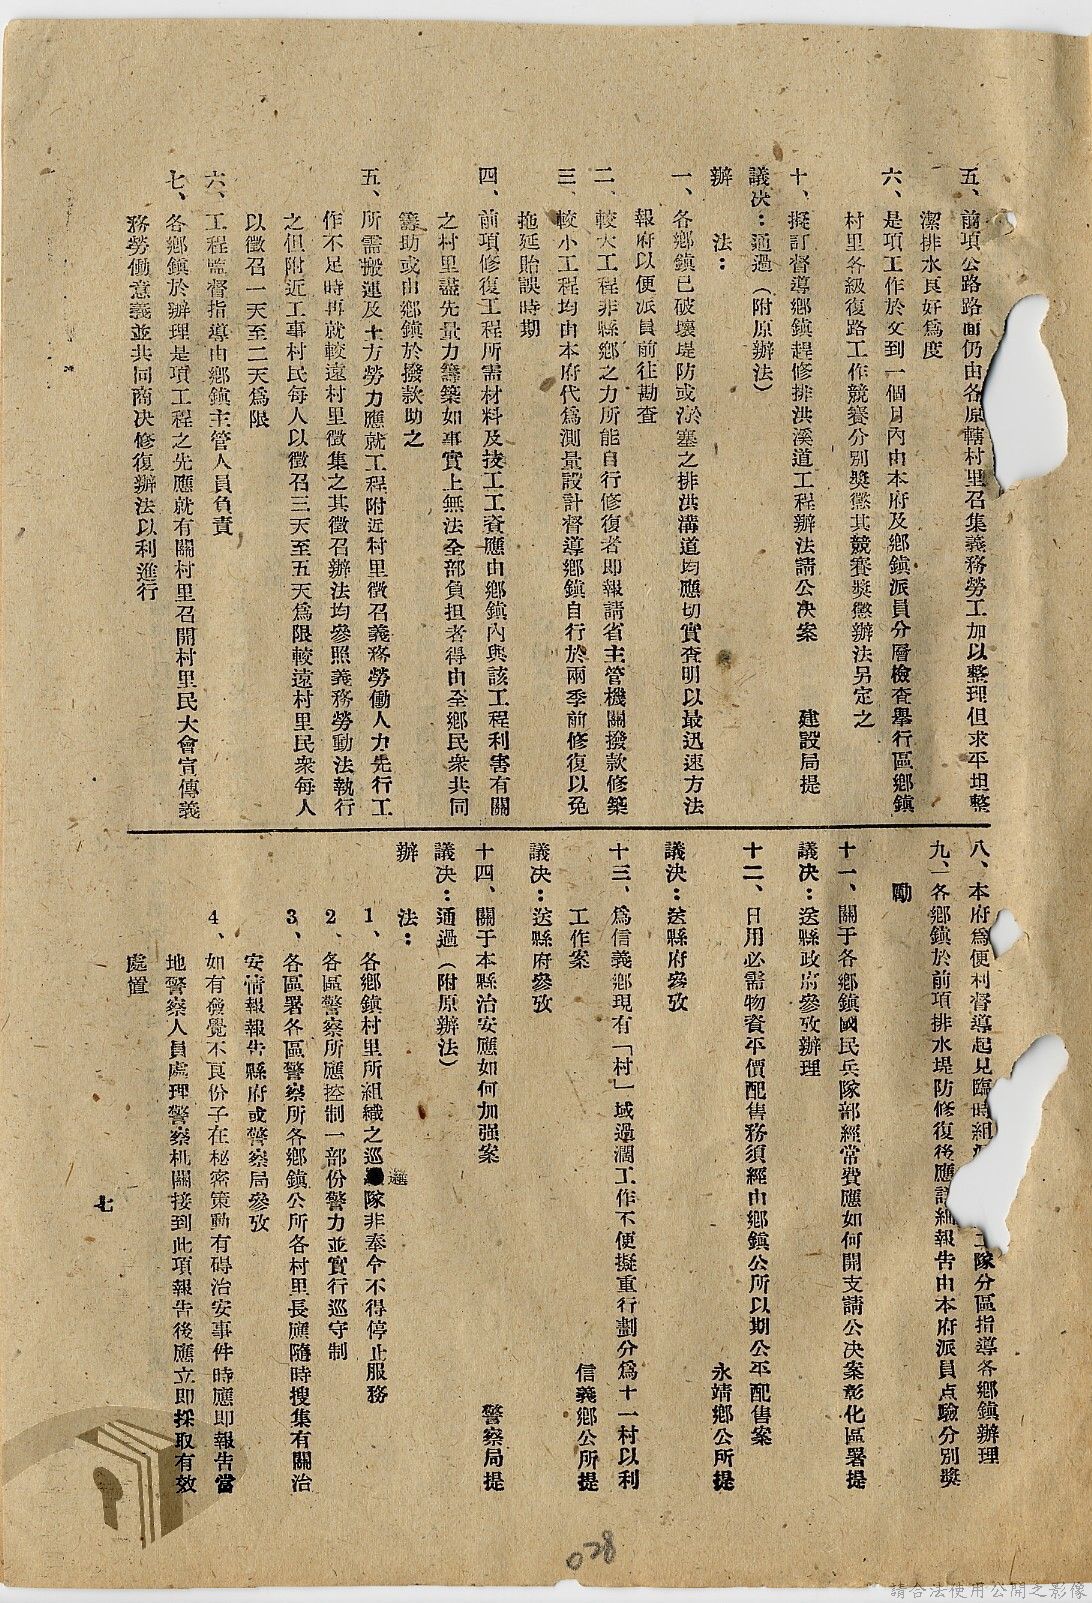 五、前項公路路面仍由各原轄村里召集義務勞工加以整理但求平坦整
潔排水良好爲度
六、是項工作於文到一個月內由本府及鄉鎮派員分層檢查舉行區鄉鎮
村里各級復路工作競賽分別獎懲其競賽獎懲辦法另定之
十、擬訂督導鄉鎮趕修排洪溪道工程辦法請公决案　　建設局提
議决：通過（附原辦法）
辦　法：
一、各鄉鎮已破壞堤防或淤塞之排洪溝道均應切實查明以最迅速方法
報府以便派員前往勘查
二、較大工程非縣鄉之力所能自行修復者即報請省主管機關撥款修築
三、較小工程均由本府代爲測量設計督導鄉鎮自行於雨季前修復以免
拖延貽誤時期
四、前項修復工程所需材料及技工工資應由鄉鎮內與該工程利害有關
之村里盡先量力籌築如事實上無法全部負担者得由全鄉民衆共同
籌助或由鄉鎮於撥款助之
五、所需搬運及土方勞力應就工程附近村里徵召義務勞働人力先行工
作不足時再就較遠村里徵集之其徵召辦法均參照義務勞動法執行
之但附近工事村民每人以徵召三天至五天爲限較遠村里民衆每人
以徵召一天至二天爲限
六、工程監督指導由鄉鎮主管人員負責
七、各鄉鎮於辦理是項工程之先應就有關村里召開村里民大會宣傳義
務勞働意義並共同商决修復辦法以利進行
八、本府爲便利督導起見臨時組隊分區指導各鄉鎮辦理
九、各鄉鎮於前項排水堤防修復後應詳細報告由本府派員点驗分別獎
勵
十一、關于各鄉鎮國民兵隊部經常費應如何開支請公决案彰化區署提
議决：送縣政府參攷辦理
十二、日用必需物資平價配售務須經由鄉鎮公所以期公平配售案
永靖鄉公所提
議决：送縣府參攷
十三、爲信義鄉現有「村」域過濶工作不便擬重行劃分爲十一村以利
工作案　　信義鄉公所提
議决：送縣府參攷
十四、關于本縣治安應如何加强案　　警察局提
議决：通過（附原辦法）
辦　法：
1、各鄉鎮村里所組織之巡邏隊非奉令不得停止服務
2、各區警察所應控制一部份警力並實行巡守制
3、各區署各區警察所各鄉鎮公所各村里長應隨時搜集有關治
安情報報告縣府或警察局參攷
4、如有發覺不良份子在秘密策動有碍治安事件時應即報告當
地警察人員處理警察机關接到此項報告後應立即採取有效
處置
七
028
請合法使用公開之影像